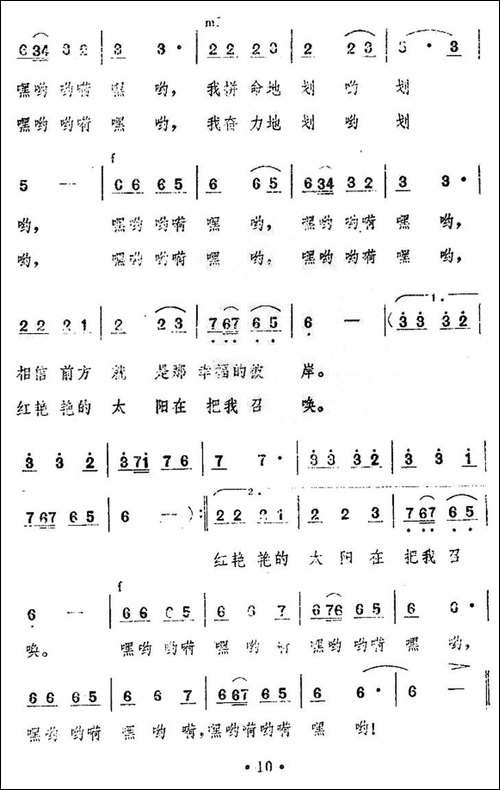 mf
6 34 3 2 | 3 3 · | 2 2 2 3 | 2 2 3 | 5 · 3 |
嘿哟 哟嗬 嘿 哟, 我拼 命地 划 哟 划
嘿哟 哟嗬 嘿 哟, 我奋 力地 划 哟 划
f
5 — — | 6 6 6 5 | 6 6 5 | 6 34 3 2 | 3 3 · |
哟, 嘿哟 哟嗬 嘿 哟, 嘿哟 哟嗬 嘿 哟,
哟, 嘿哟 哟嗬 嘿 哟, 嘿哟 哟嗬 嘿 哟,
1.
2 2 2 1 | 2 2 3 | 7 67 6 5 | 6 — | ( 3 3 3 2 |
相信 前方 就 是那 幸福的彼 岸。
红艳 艳的 太 阳在 把我 召 唤。
3 3 2 | 3 71 7 6 | 7 7 · | 3 3 3 2 | 3 3 1 |
2.
7 67 6 5 | 6 — ) :‖ 2 2 2 1 | 2 2 3 | 7 67 6 5 |
红艳 艳的 太 阳在 把我 召
f
6 — — | 6 6 6 5 | 6 6 7 | 6 76 6 5 | 6 6 · |
唤。 嘿哟 哟嗬 嘿 哟 嘿哟 哟嗬 嘿 哟,
6 6 6 5 | 6 6 7 | 6 67 6 5 | 6 6 · | 6 — ‖
嘿哟 哟嗬 嘿 哟 嗬,嘿哟嗬哟嗬 嘿 哟!
· 10 ·